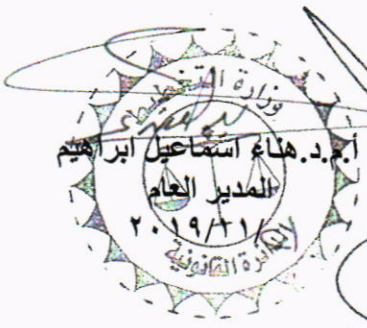 وزارة
أ.م.د. هناء اسماعيل ابراهيم
المدير العام
٢٠١٩/١١/
الدائرة القانونية